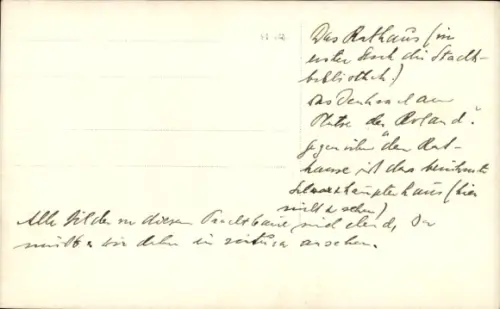 Das Rathaus (im
ersten Stock die Stadt-
bibliothek.)
Das Denkmal am
Platze der "Roland".
gegenüber dem Rat-
hause ist das berühmte
Schwarzhäupterhaus (hier
nicht zu sehen)
Alle Bilder von diesem Prachtbau sind elend, Da
müßten wir daher in natura ansehen.